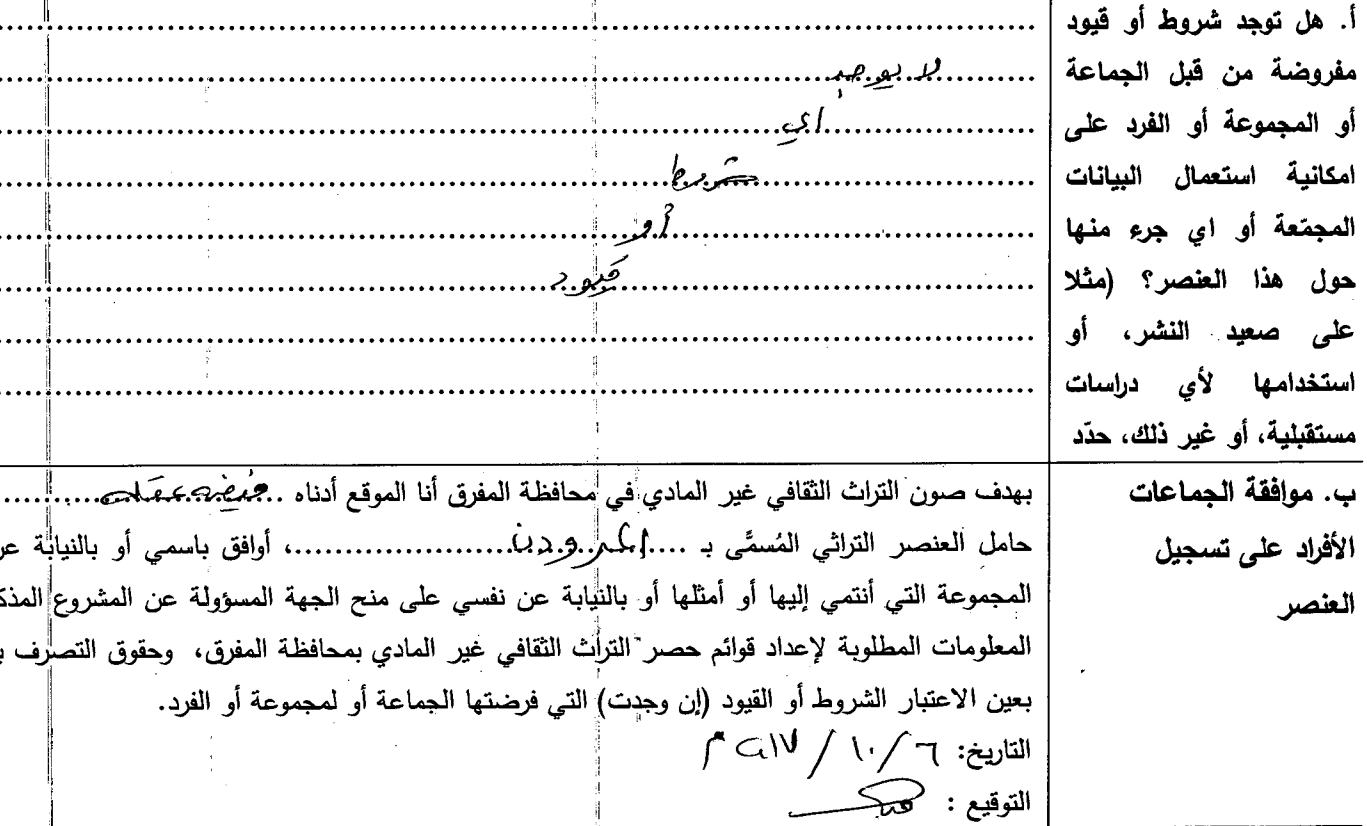 أ. هل توجد شروط أو قيود
مفروضة من قبل الجماعة
أو المجموعة أو الفرد على
امكانية استعمال البيانات
المجمّعة أو اي جرء منها
حول هذا العنصر؟ (مثلا
على صعيد النشر، أو
استخدامها لأي دراسات
مستقبلية، أو غير ذلك، حدّد
لا يوجد
اي
شروط
أو
قيود
ب. موافقة الجماعات
الأفراد على تسجيل
العنصر
بهدف صون التراث الثقافي غير المادي في محافظة المفرق أنا الموقع أدناه
حامل العنصر التراثي المُسمَّى بـ ....................، أوافق باسمي أو بالنيابة عن
المجموعة التي أنتمي إليها أو أمثلها أو بالنيابة عن نفسي على منح الجهة المسؤولة عن المشروع المذك
المعلومات المطلوبة لإعداد قوائم حصر التراث الثقافي غير المادي بمحافظة المفرق، وحقوق التصرف ب
بعين الاعتبار الشروط أو القيود (إن وجدت) التي فرضتها الجماعة أو لمجموعة أو الفرد.
التاريخ: ٦ / ١٠ / ٢٠١٧ م
التوقيع :